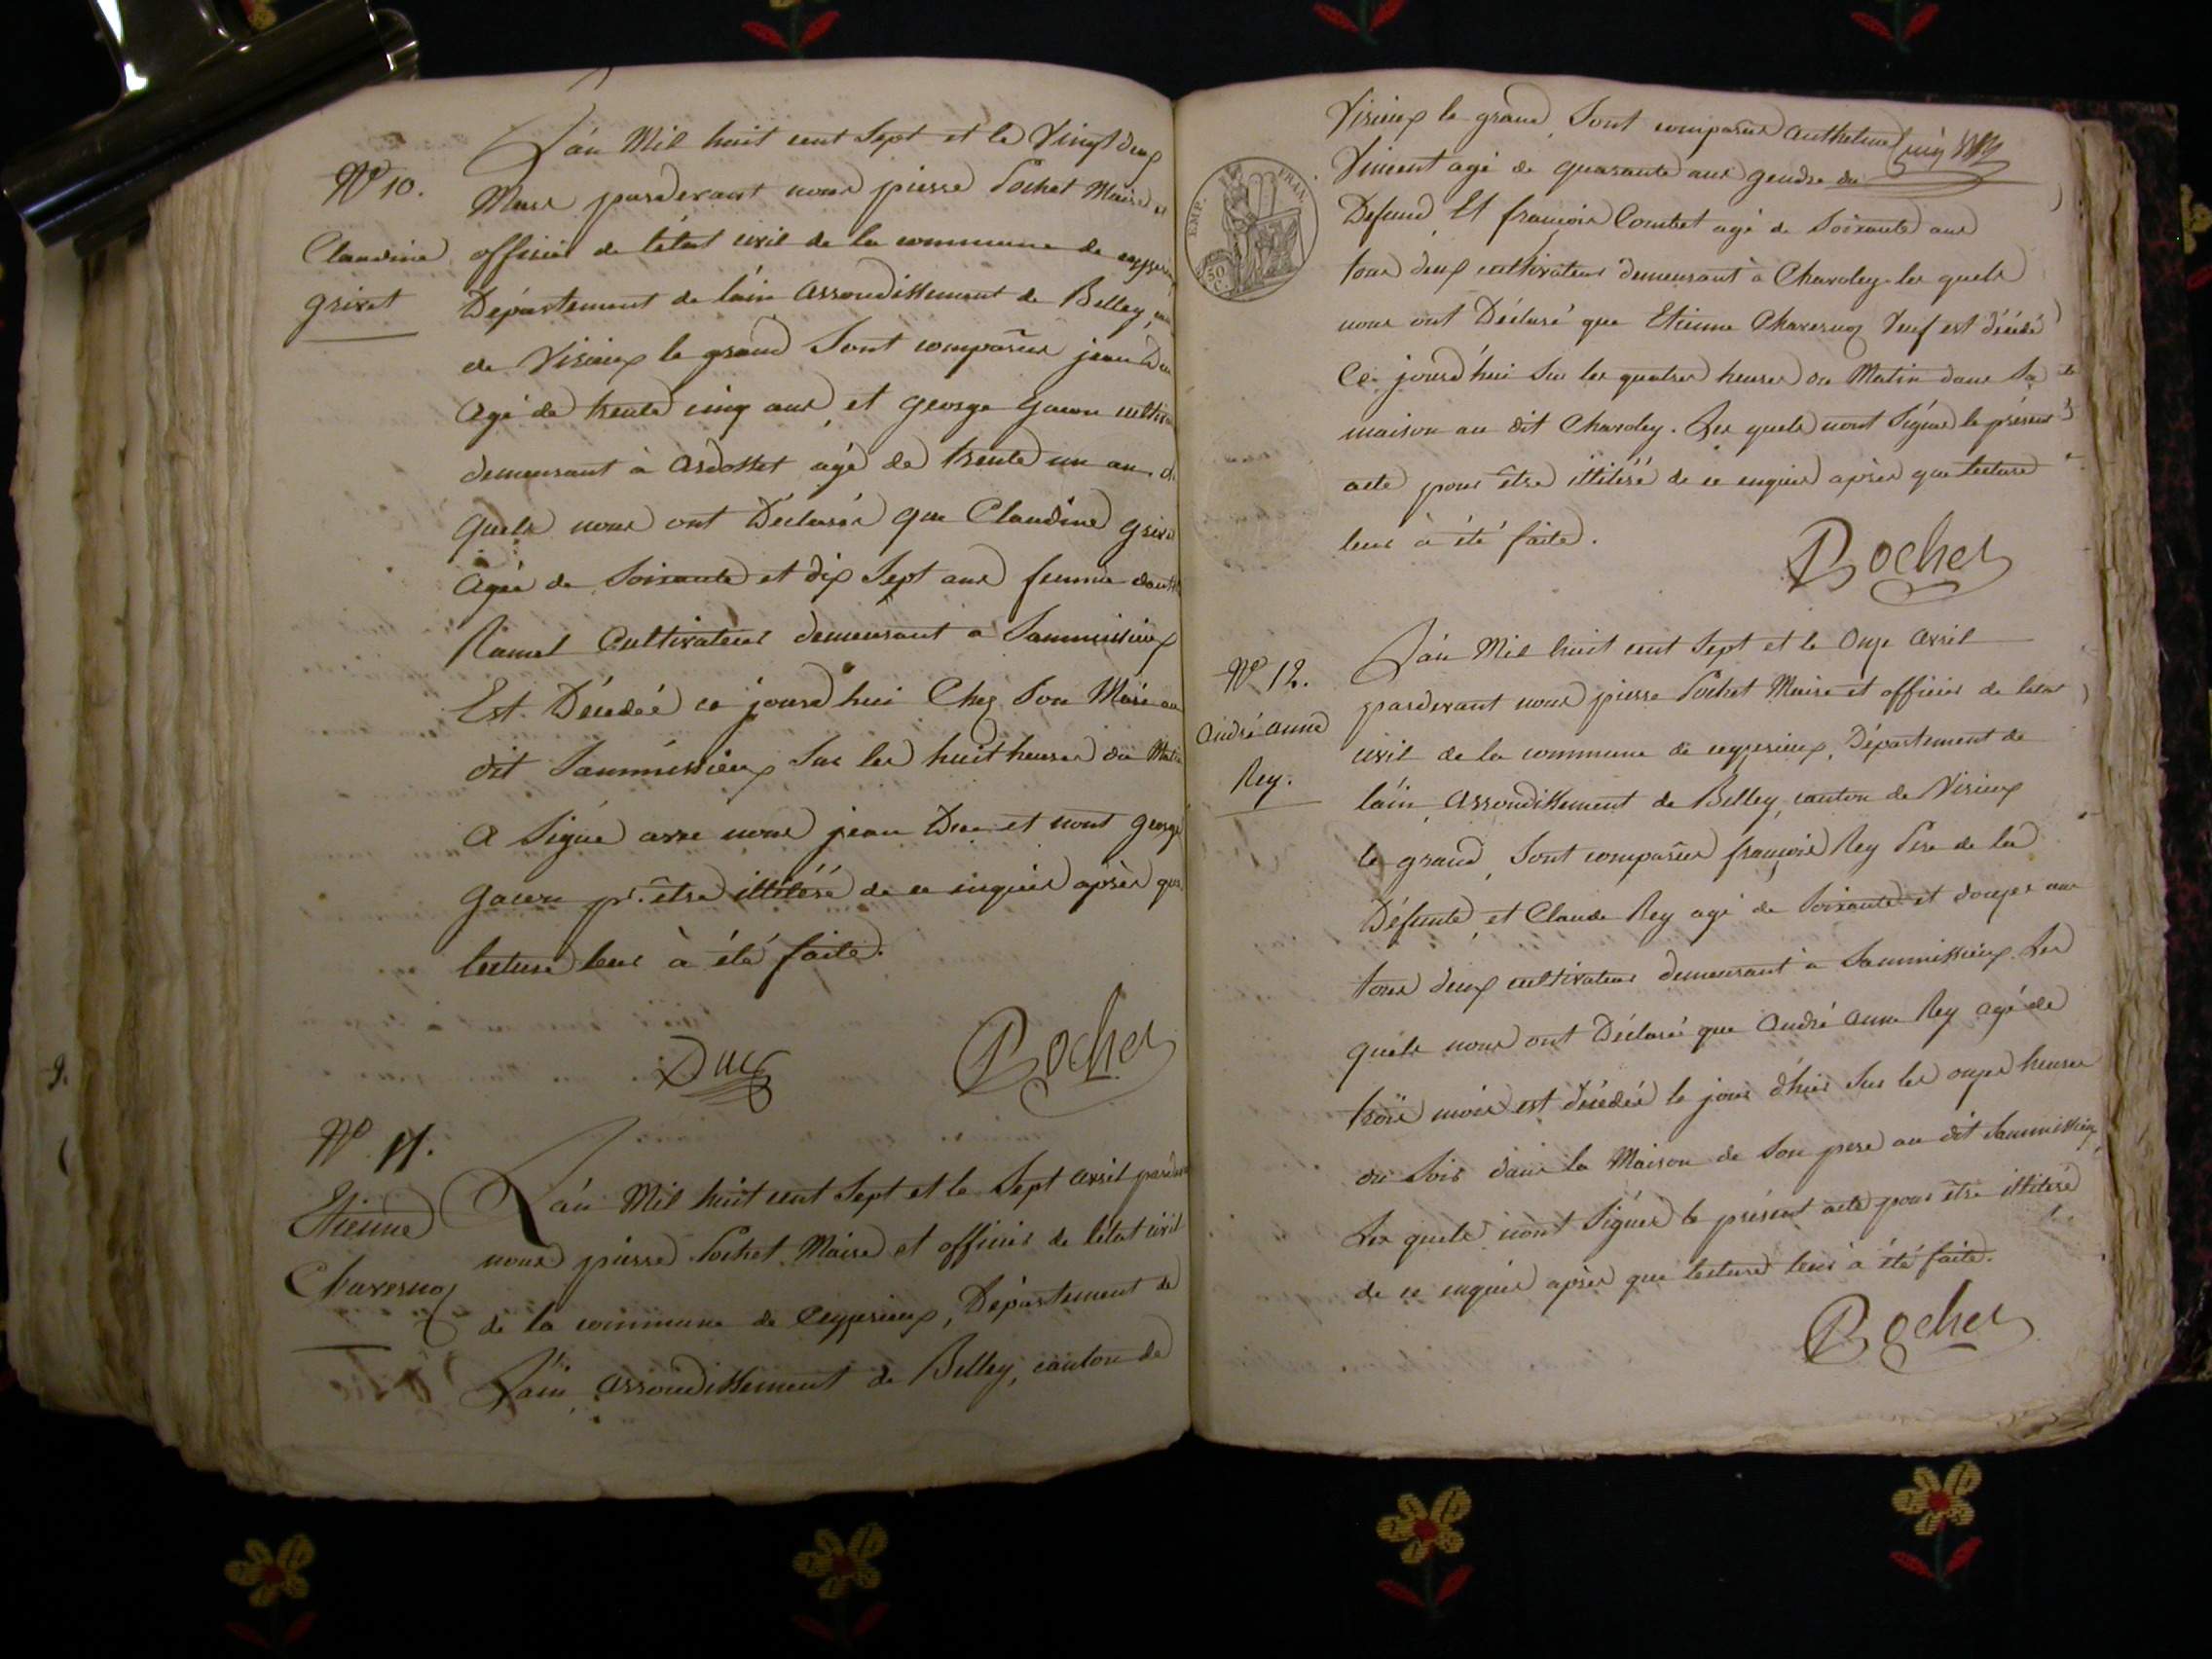 N° 10.
Claudine
grivet
L'án Mil huit cent Sept et le Vingt deux
Mars pardevant nous pierre Pochet Maire et
officier de létat civil de la commune de ceyzerieux
Département de láin arrondissement de Belley,
de Virieux le grand Sont comparûs jean Duc
agé de trente cinq ans, et george gacon
demeurant à ardosset agé de trente un ans
quels nous ont Déclarés que Claudine grivet
agée de Soixante et dix Sept ans femme
Ramel Cultivateur demeurant a Sammissieux
Est Décédée ce jourd'hui Chez Son Mari au
dit Sammissieux Sur les huit heures du Matin
a Signé avec nous jean Duc et nont george
gacon pr. être illitéré de ce enquis après que
lecture leur à été faite.
Duc Pochet
N° 11.
Etienne
Chavernoz
L'án Mil huit cent Sept et le Sept avril pardevant
nous pierre Pochet Maire et officier de létat civil
de la commune de Ceyzerieux, Département de
L'ain, arrondissement de Belley, canton de
EMP. FRAN.
50 C.
Virieux le grand, Sont comparûs anthelme
Vincent agé de quarante ans gendre du
Defund, Et françois Combet agé de Soixante ans
tous deux cultivateur demeurant à Charoley les quels
nous ont Déclaré que Etienne Chavernoz Veuf est décédé
Ce jourd'hui Sur les quatres heures du Matin dans Sa
maison au dit Charoley. Les quels nont Signés le présent
acte pour être illitéré de ce enquis après que lecture
leur à été faite.
Pochet
N° 12.
andré anne
Rey.
L'án Mil huit cent Sept et le Onze avril
pardevant nous pierre Pochet Maire et officier de létat
civil de la commune de ceyzerieux, Département de
láin, arrondissement de Belley, canton de Virieux
le grand, Sont comparûs françois Rey Pere de la
Défunte, et Claude Rey agé de Soixante et douzes ans
tous deux cultivateur demeurant a Sammissieux. Les
quels nous ont Déclaré que andré anne Rey agé de
trois mois est décédée le jour d'hier Sur les onzes heures
du Soir dans la Maison de Son pere au dit Sammissieux
Les quels nont Signés le présent acte pour être illitéré
de ce enquis après que lecture leur à été faite.
Pochet